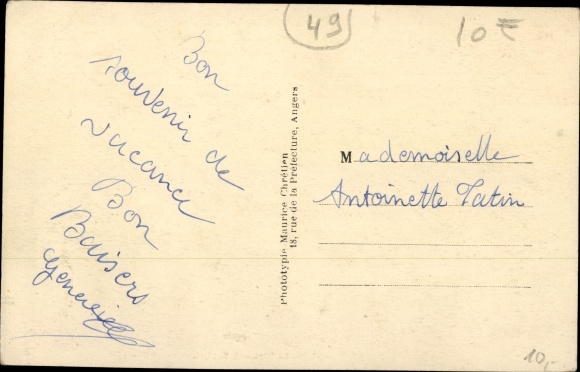 Bon
souvenir de
vacance
Bon
Baisers
49
10€
Phototypie Maurice Chrétien
18, rue de la Préfecture, Angers
Mademoiselle
Antoinette Tatin
10,-